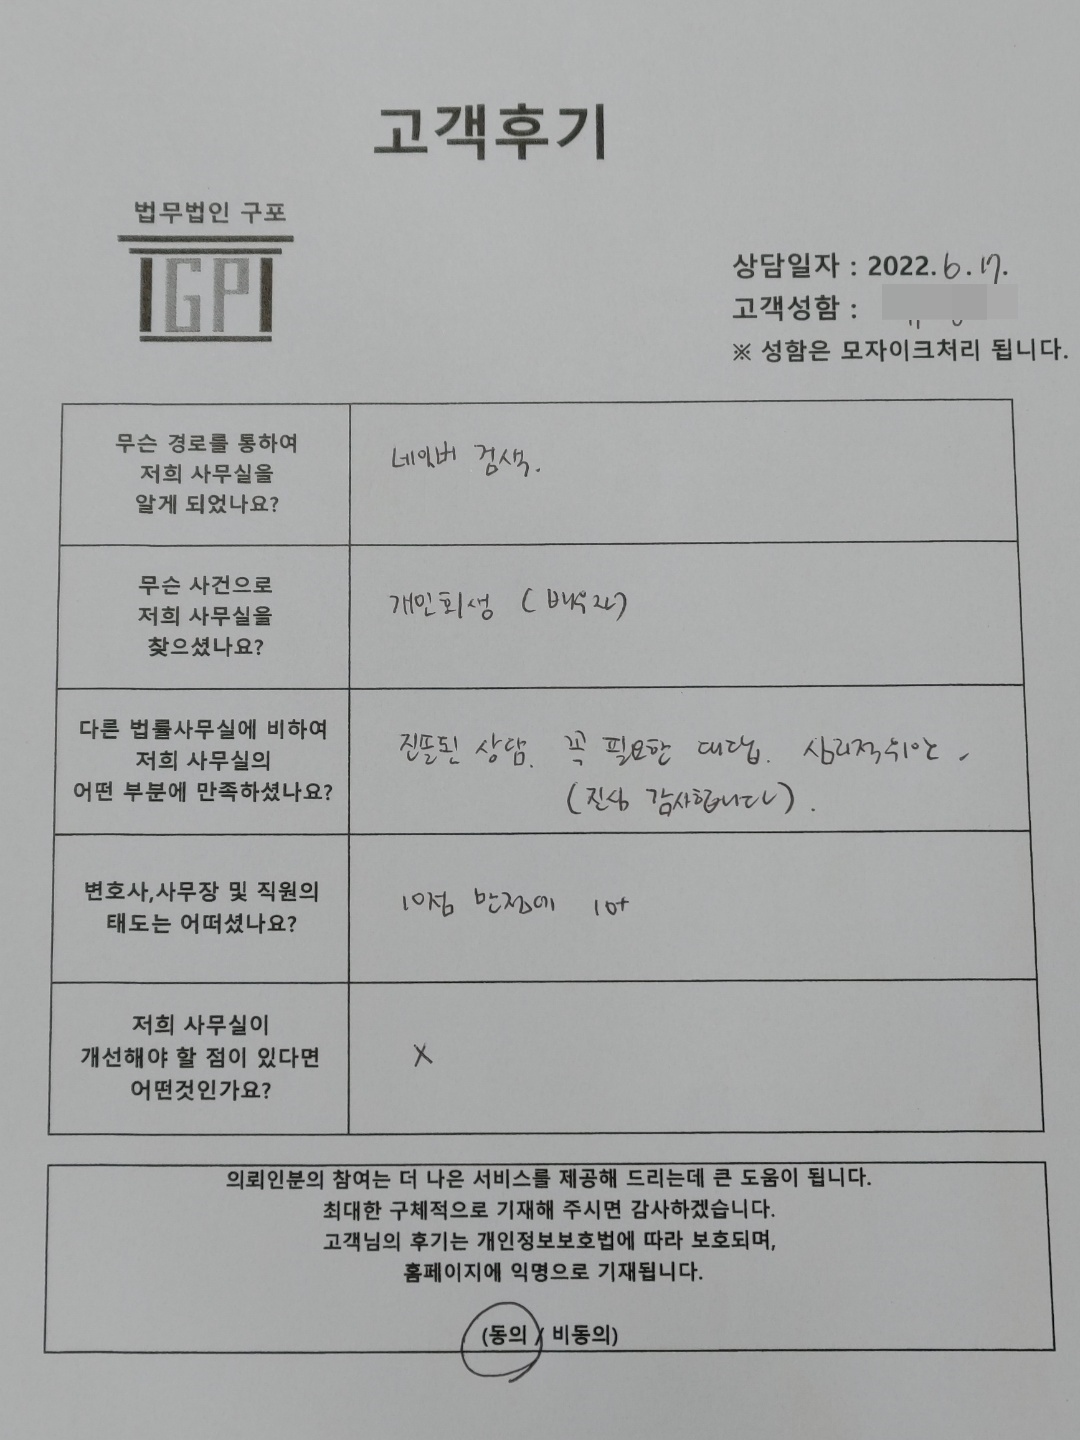 고객후기
법무법인 구포
GP
상담일자 : 2022. 6. 17.
고객성함 :
※ 성함은 모자이크처리 됩니다.
무슨 경로를 통하여
저희 사무실을
알게 되었나요?
네이버 검색.
무슨 사건으로
저희 사무실을
찾으셨나요?
개인회생 (배우자)
다른 법률사무실에 비하여
저희 사무실의
어떤 부분에 만족하셨나요?
진뜰된 상담. 꼭 필요한 대답. 심리적위안.
(진심 감사합니다).
변호사,사무장 및 직원의
태도는 어떠셨나요?
10점 만점에 10+
저희 사무실이
개선해야 할 점이 있다면
어떤것인가요?
X
의뢰인분의 참여는 더 나은 서비스를 제공해 드리는데 큰 도움이 됩니다.
최대한 구체적으로 기재해 주시면 감사하겠습니다.
고객님의 후기는 개인정보보호법에 따라 보호되며,
홈페이지에 익명으로 기재됩니다.
(동의 / 비동의)